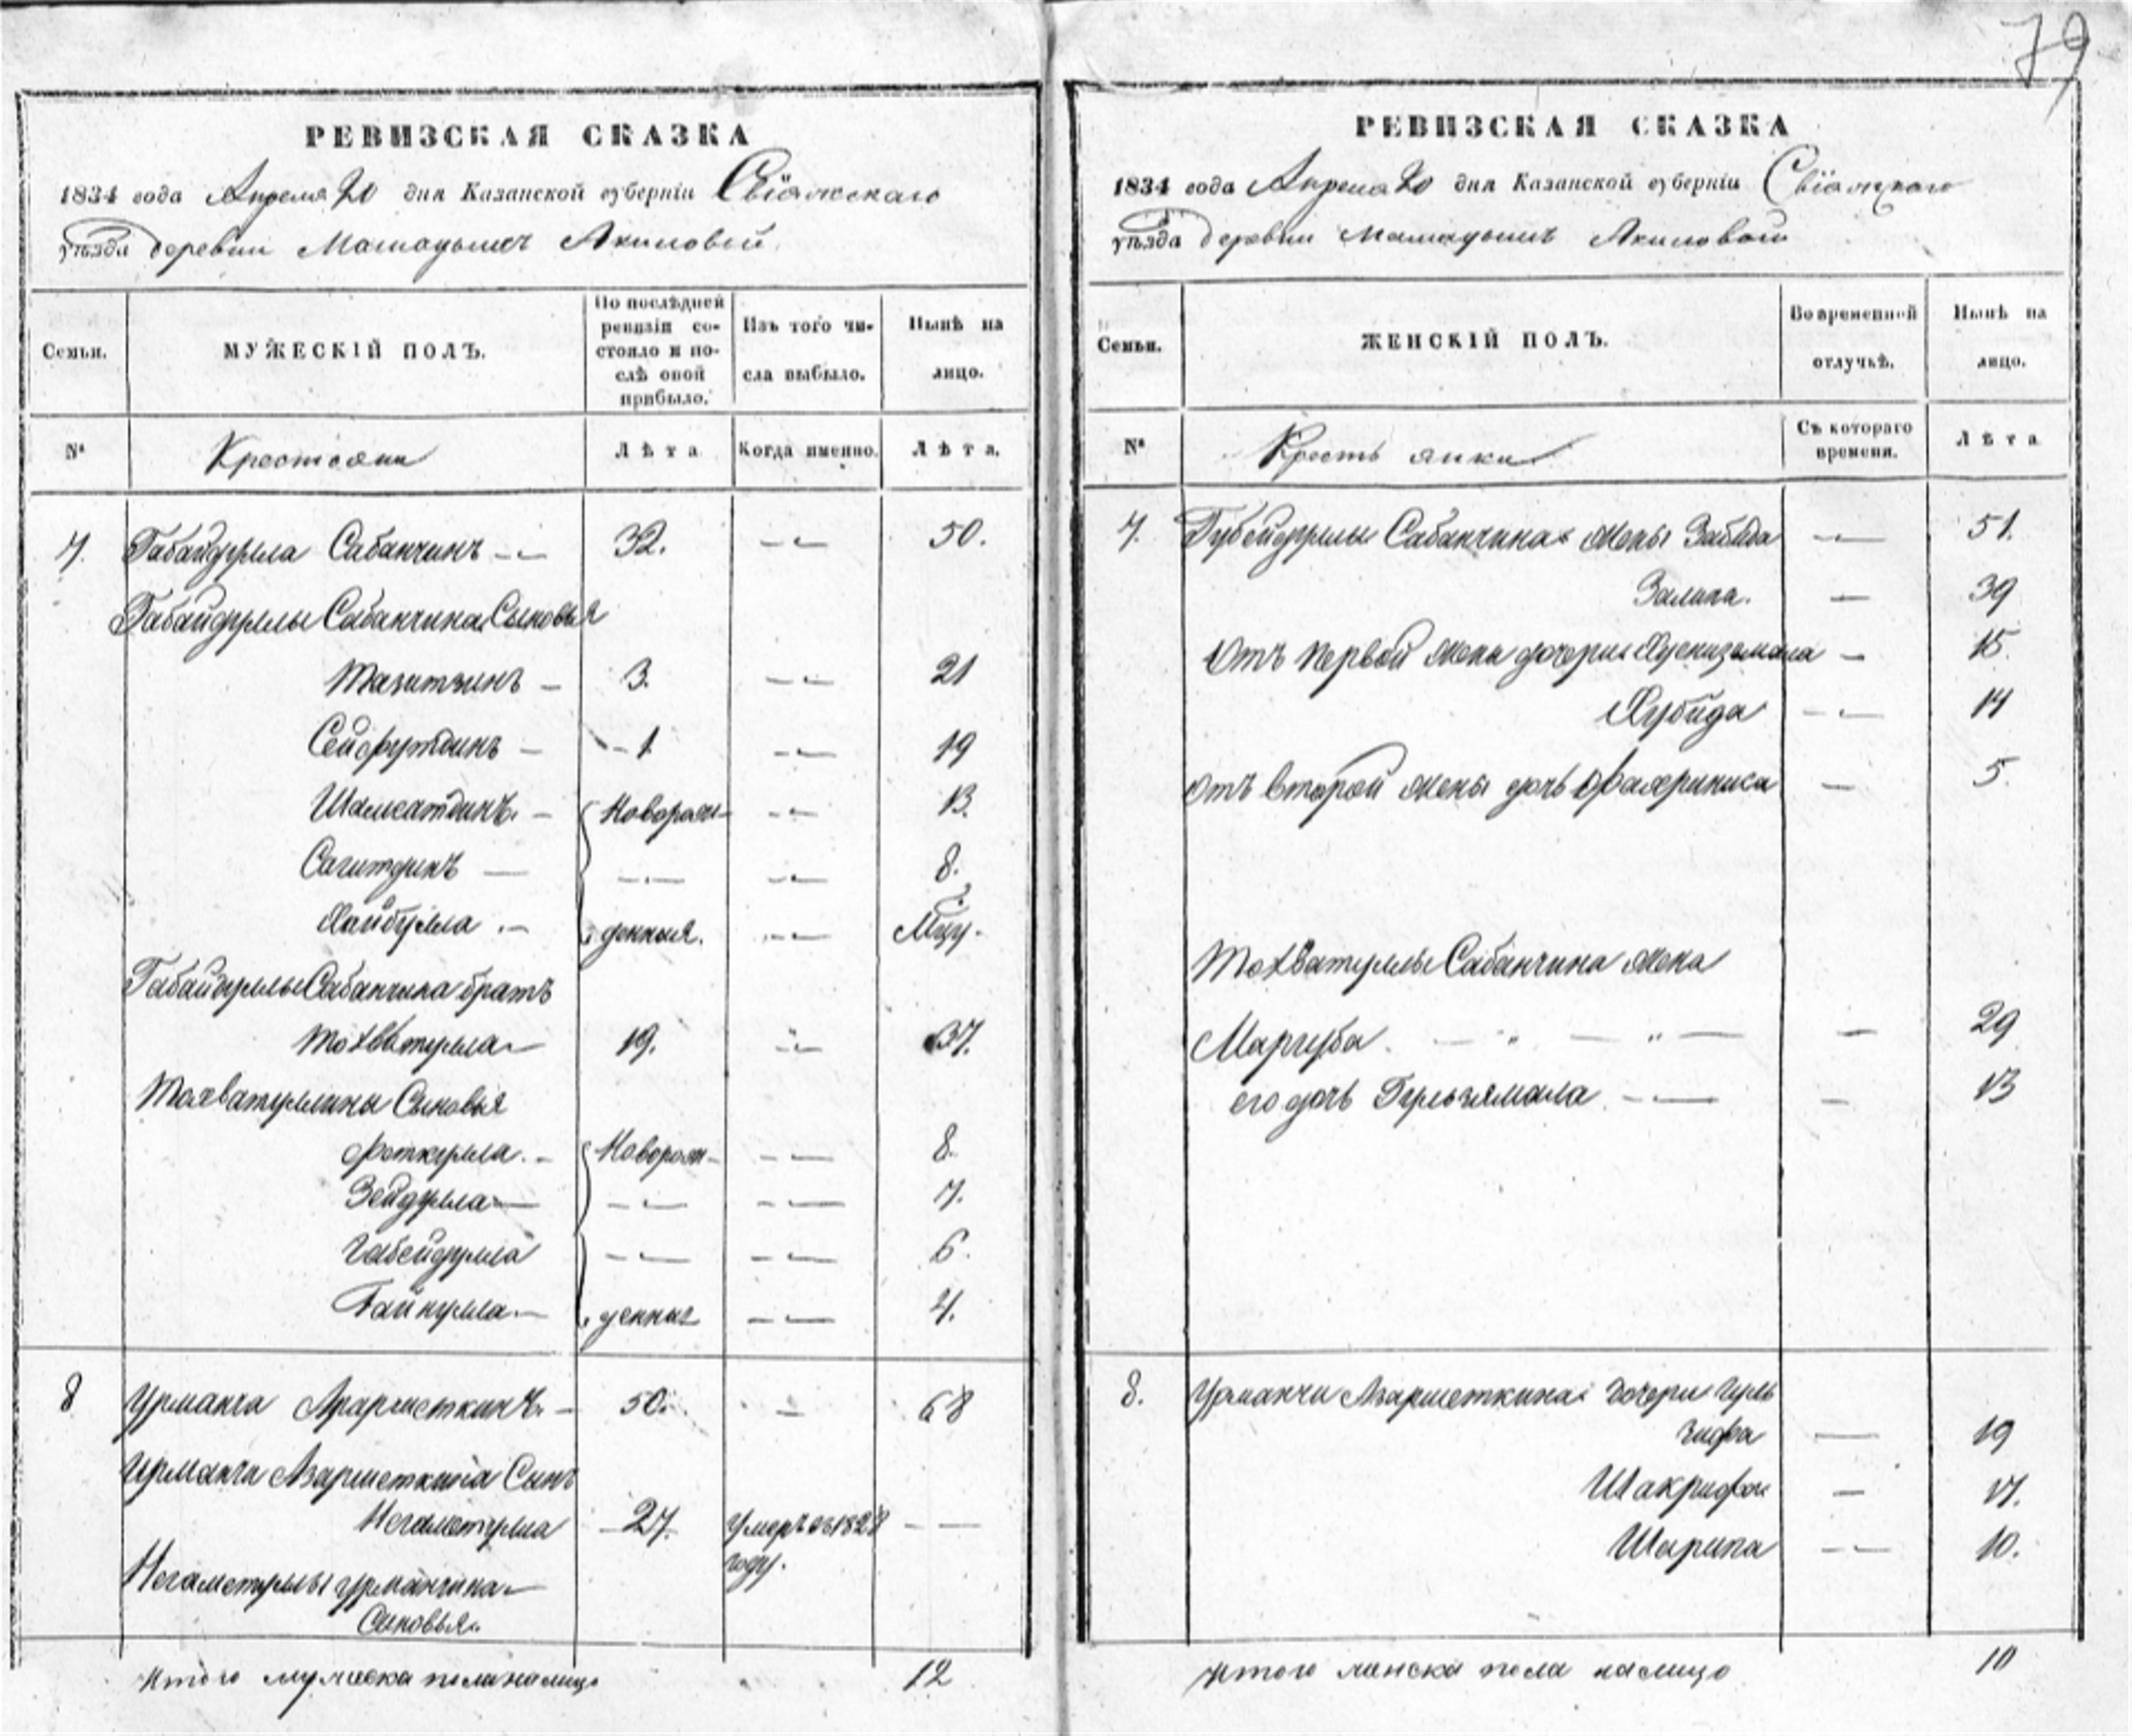 79
РЕВИЗСКАЯ СКАЗКА
1834 года Апреля 20 дня Казанской губерніи Свіяжскаго
уѣзда деревни Мамадышъ Акиловой
Семьи.
МУЖЕСКІЙ ПОЛЪ.
По послѣдней
ревизіи со-
стояло и по-
слѣ оной
прибыло.
Изъ того чи-
сла выбыло.
Нынѣ на
лицо.
№
Крестьяни
Лѣта
Когда именно.
Лѣта.
7. Габайдулла Сабанчинъ 32. 50.
Габайдуллы Сабанчина Сыновья
3. 21
Сейфутдинъ 1 19
Шамсатдинъ Новорож- 13.
Сагитдинъ 8.
Хайбулла денныя.
Габайдуллы Сабанчина братъ
Тохватулла 19. 37.
Тохватуллины Сыновья
Фаткулла Новорож- 8.
Зейдулла 7.
Габейдулла 6.
Гайнулла 4.
8 Урманча 50. 68
Урманчи Азарметкина Сынъ
Негаметулла 27. Умеръ въ 1828
году.
Негаметуллы Урманчина
Сыновья
Итого мужеска пола налицо 12
РЕВИЗСКАЯ СКАЗКА
1834 года Апреля 20 дня Казанской губерніи Свіяжскаго
уѣзда деревни Мамадышъ Акиловой
Семьи.
ЖЕНСКІЙ ПОЛЪ.
Во временной
отлучкѣ.
Нынѣ на
лицо.
№
Кресть янки
Съ котораго
времени.
Лѣта
7. Губейдуллы Сабанчина жены 51.
Залипа. 39
Отъ первой жены дочери 15
Хубида 14
Отъ второй жены дочь 5.
Тохватуллы Сабанчина жена
Маргуба 29
его дочь Гульзямала 13
8. Урманчи Азарметкина дочери Гуль
зифа 19
Шакрифа 17.
Шарипа 10.
Итого женска пола налицо 10